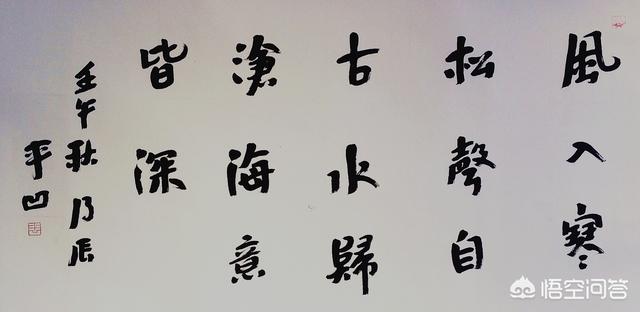 風入寒
松聲自
古水歸
滄海意
皆深
壬午秋
平凹
悟空问答